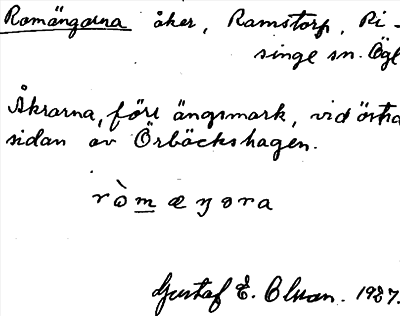 Romängarna åker, Ramstorp, Ri-
singe sn. Ögl
Åkrarna, förr ängsmark, vid östra
sidan av Örbäckshagen.
ròmæŋəra
Gustaf E. Olsson. 1927.